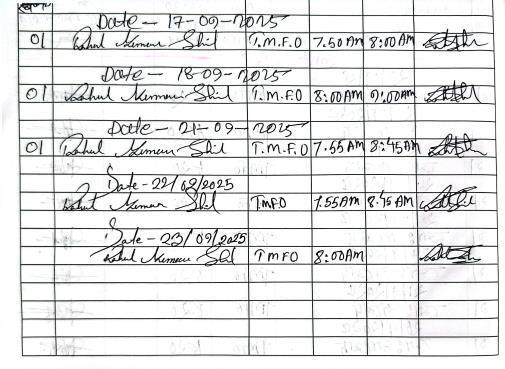 Date - 17-09-2025
01 Rahul Kumar Shil T.M.F.O 7.50 Am 8:00 Am
Date - 18-09-2025
01 Rahul Kumar Shil T.M.F.O 8:00 Am 9:00 Am
Date - 21-09-2025
01 Rahul Kumar Shil T.M.F.O 7.55 Am 8:45 Am
Date - 22/09/2025
Rahul Kumar Shil T.M.F.O 7.55 Am 8:45 Am
Date - 23/09/2025
Rahul Kumar Shil T M F O 8:00 Am